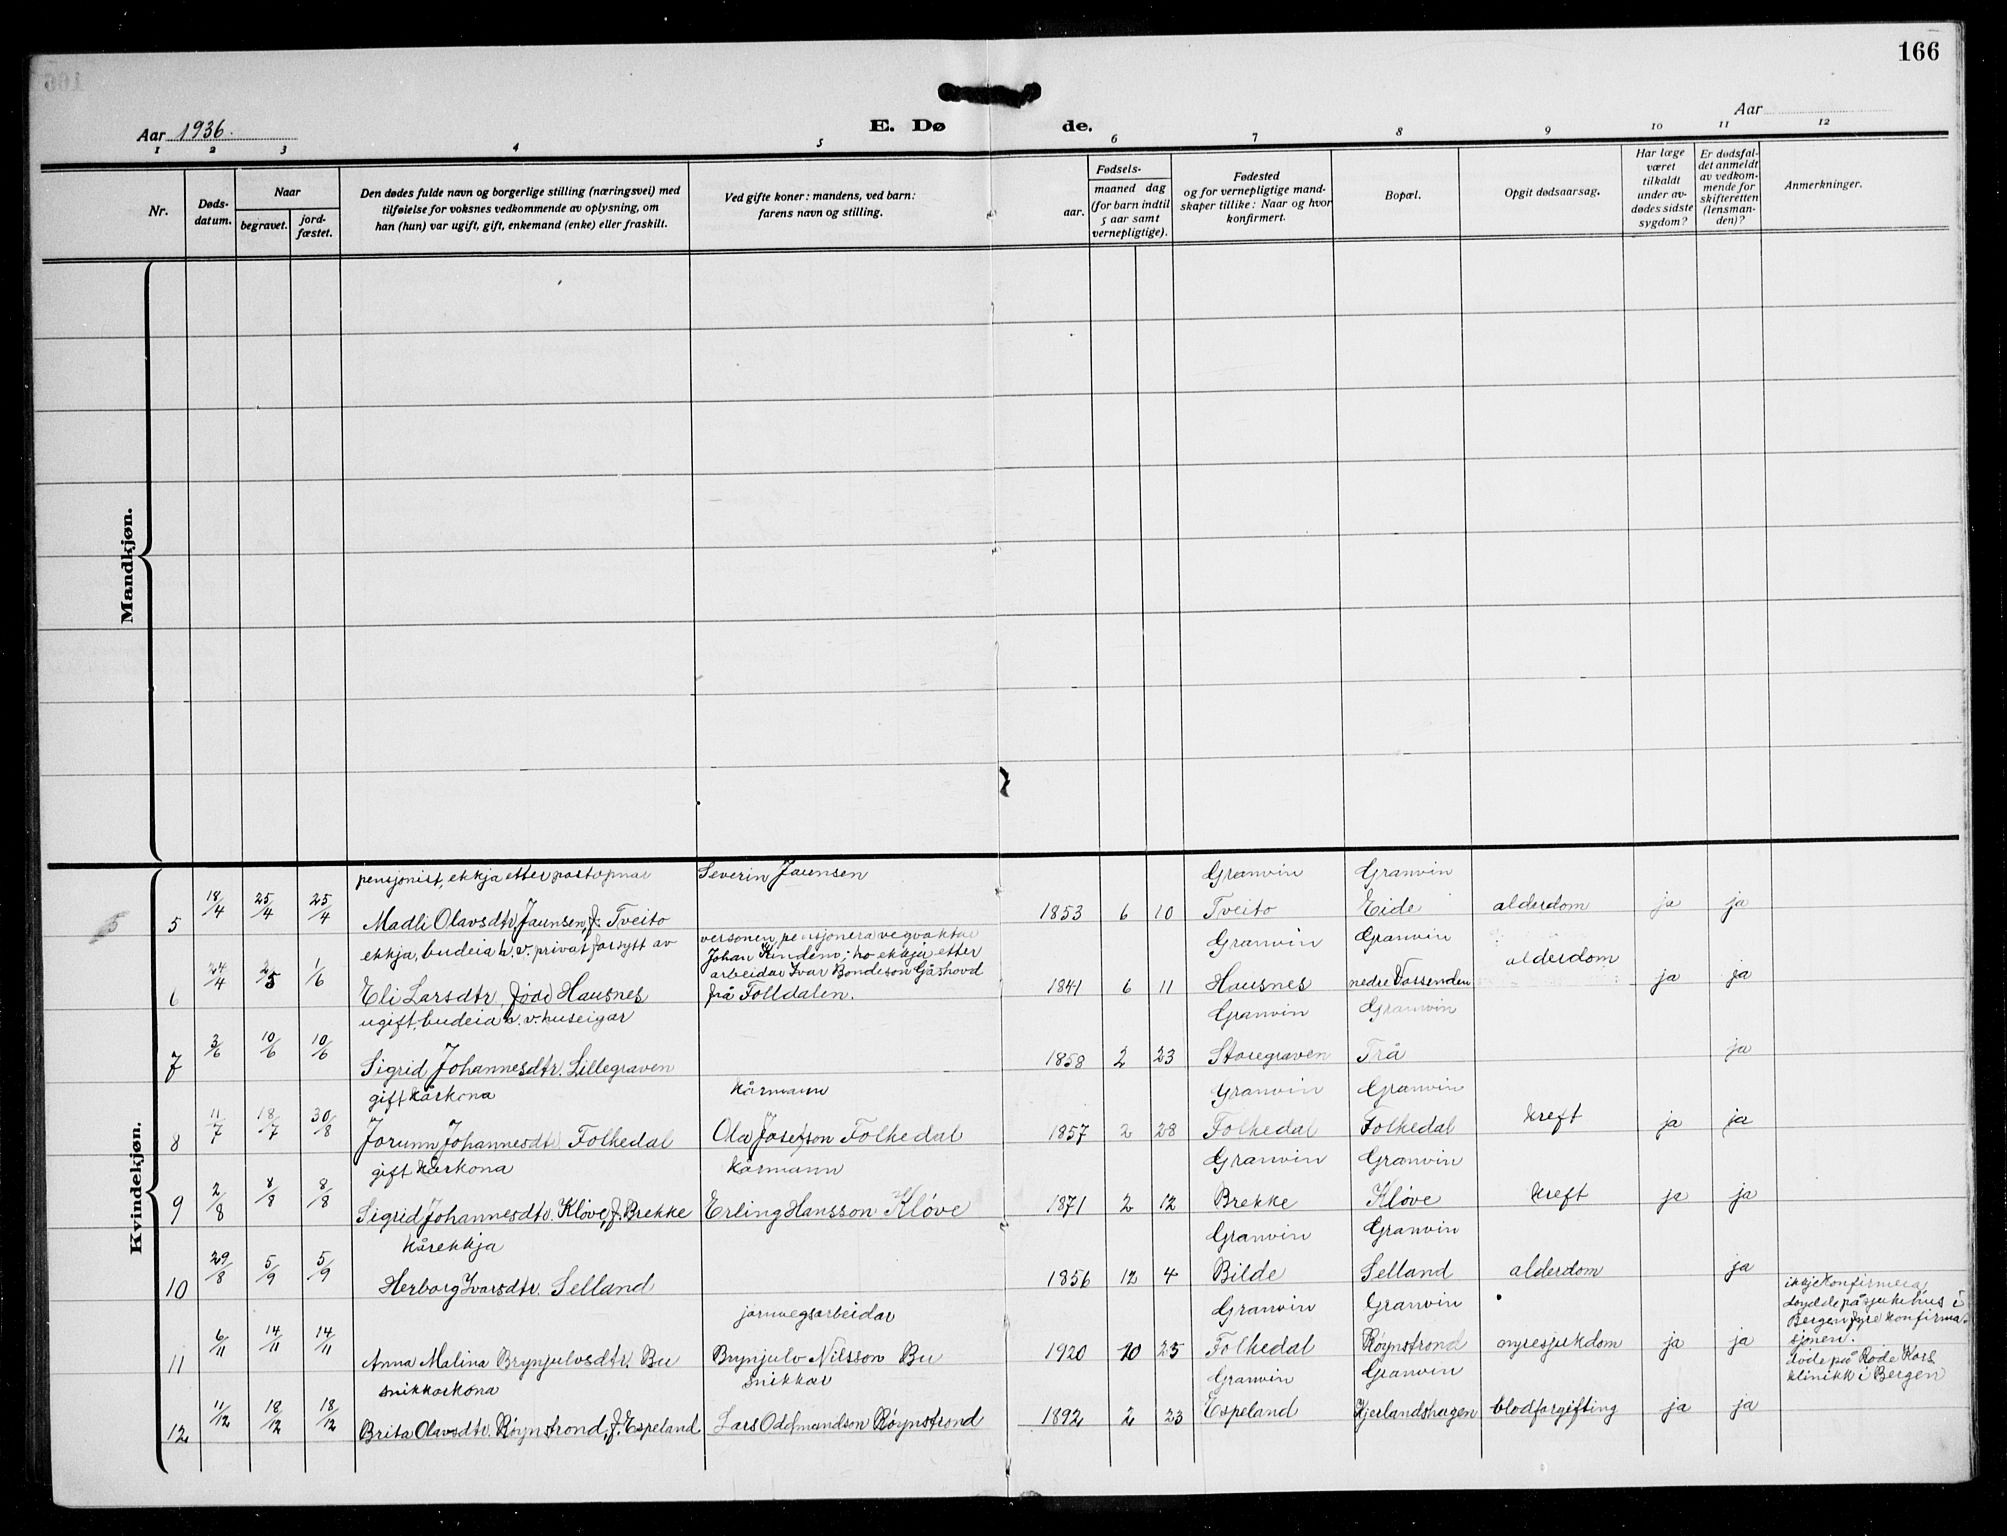 166
Aar 1936.
E. Dø de.
Aar
1 2 3 4 5 6 7 8 9 10 11 12
Nr.
Døds-
datum.
Naar
begravet.
jord-
fæstet.
Den dødes fulde navn og borgerlige stilling (næringsvei) med
tilføielse for voksnes vedkommende av oplysning, om
han (hun) var ugift, gift, enkemand (enke) eller fraskilt.
Ved gifte koner: mandens, ved barn:
farens navn og stilling.
Fødsels-
aar.
maaned dag
(for barn indtil
5 aar samt
vernepligtige).
Fødested
og for vernepligtige mand-
skaper tillike: Naar og hvor
konfirmert.
Bopæl.
Opgit dødsaarsag.
Har læge
været
tilkaldt
under av-
dødes sidste
sygdom?
Er dødsfal-
det anmeldt
av vedkom-
mende for
skifteretten
(lensman-
den)?
Anmerkninger.
Mandkjøn.
Kvindekjøn.
pensjonist, ekkja etter postopnar Severin Jaunsen Granvin Granvin
5 5 18/4 25/4 25/4 Madli Olavsdtr. Jaunsen, f. Tveito 1853 6 10 Tveito Eide alderdom ja ja
ekkja, budeia h. v. privat forsytt av
versonen, pensjonera vegvaktar
Johan Kindem; ho ekkja etter
arbeidar Ivar Bondeson Gåshovd
frå Folldalen.
Granvin Granvin
6 24/4 2/5 1/6 Eli Larsdtr. fødd Hausnes 1841 6 11 Hausnes nedre Vassenden alderdom ja ja
ugift, budeia h. v. huseigar Granvin Granvin
7 3/6 10/6 10/6 Sigrid Johannesdtr. Lillegraven 1858 2 23 Storegraven Trå ja
gift kårkona kårmann Granvin Granvin
8 11/7 18/7 30/8 Jorunn Johannesdtr. Folkedal Ola Josefson Folkedal 1857 2 28 Folkedal Folkedal kreft ja ja
gift kårkona kårmann Granvin Granvin
9 2/8 8/8 8/8 Sigrid Johannesdtr. Kløve, f. Brekke Erling Hansson Kløve 1871 2 12 Brekke Kløve kreft ja ja
kårekkja Granvin Granvin
10 29/8 5/9 5/9 Herborg Ivarsdtr. Selland 1856 12 4 Bilde Selland alderdom ja
jarnvegsarbeidar Granvin Granvin
11 6/11 14/11 14/11 Anna Malina Brynjulvsdtr. Bu Brynjulv Nilsson Bu 1920 10 25 Folkedal Røynstrond nyresjukdom ja ja
ikkje konfirmera,
døydde på sjukehus i
Bergen fyre konfirma-
sjonen.
snikkarkona snikkar Granvin Granvin
12 11/12 18/12 18/12 Brita Olavsdtr. Røynstrond, f. Espeland Lars Oddmundson Røynstrond 1892 2 23 Espeland Kjerlandshagen blodforgifting ja ja
døde på Røde Kors
klinikk i Bergen